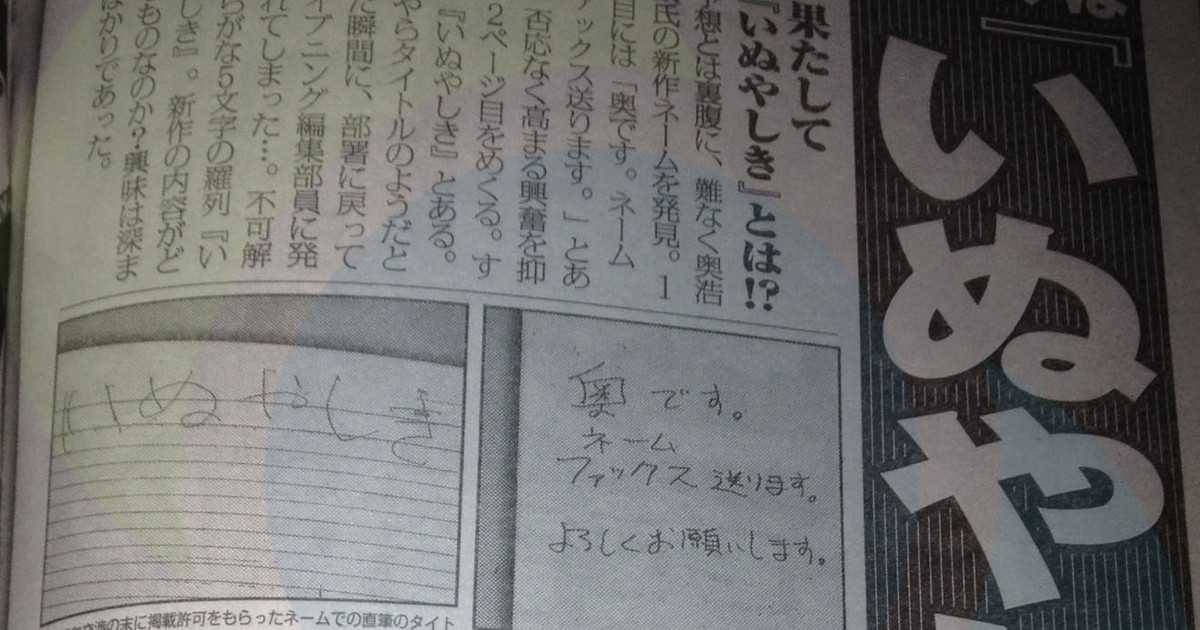 は『
いぬや
果たして
『いぬやしき』とは!?
予想とは裏腹に、難なく奥浩
氏の新作ネームを発見。1
目には「奥です。ネーム
ァックス送ります。」とあ
否応なく高まる興奮を抑
2ページ目をめくる。す
『いぬやしき』とある。
やらタイトルのようだと
た瞬間に、部署に戻って
イブニング編集部員に発
れてしまった…。不可解
らがな5文字の羅列『い
しき』。新作の内容がど
ものなのか?興味は深ま
ばかりであった。
奥です。
ネーム
ファックス送ります。
よろしくお願いします。
いぬやしき
交渉の末に掲載許可をもらったネームでの直筆のタイト